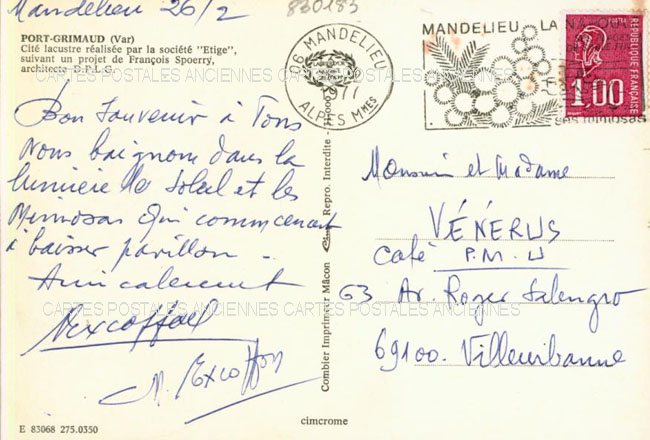 Mandelieu 26/2
830183
PORT-GRIMAUD (Var)
Cité lacustre réalisée par la société "Etige",
suivant un projet de François Spoerry,
architecte D.P.L.G.
CARTES POSTALES ANCIENNES CARTES POSTALES ANCIENNES
Bon Souvenir à Tous
Nous baignons dans la
lumière de Soleil et les
Mimosas qui commencent
à baisser pavillon.
Amicalement
CARTES POSTALES ANCIENNES CARTES POSTALES ANCIENNES
E 83068 275.0350
Combier Imprimeur Mâcon
Repro. Interdite
cimcrome
06 MANDELIEU
ALPES Mmes
MANDELIEU LA
des mimosas
POSTES
1,00
REPUBLIQUE FRANÇAISE
Monsieur et Madame
VÉNÉRUS
Café P.M.U
63 Av. Roger Salengro
69100. Villeurbanne